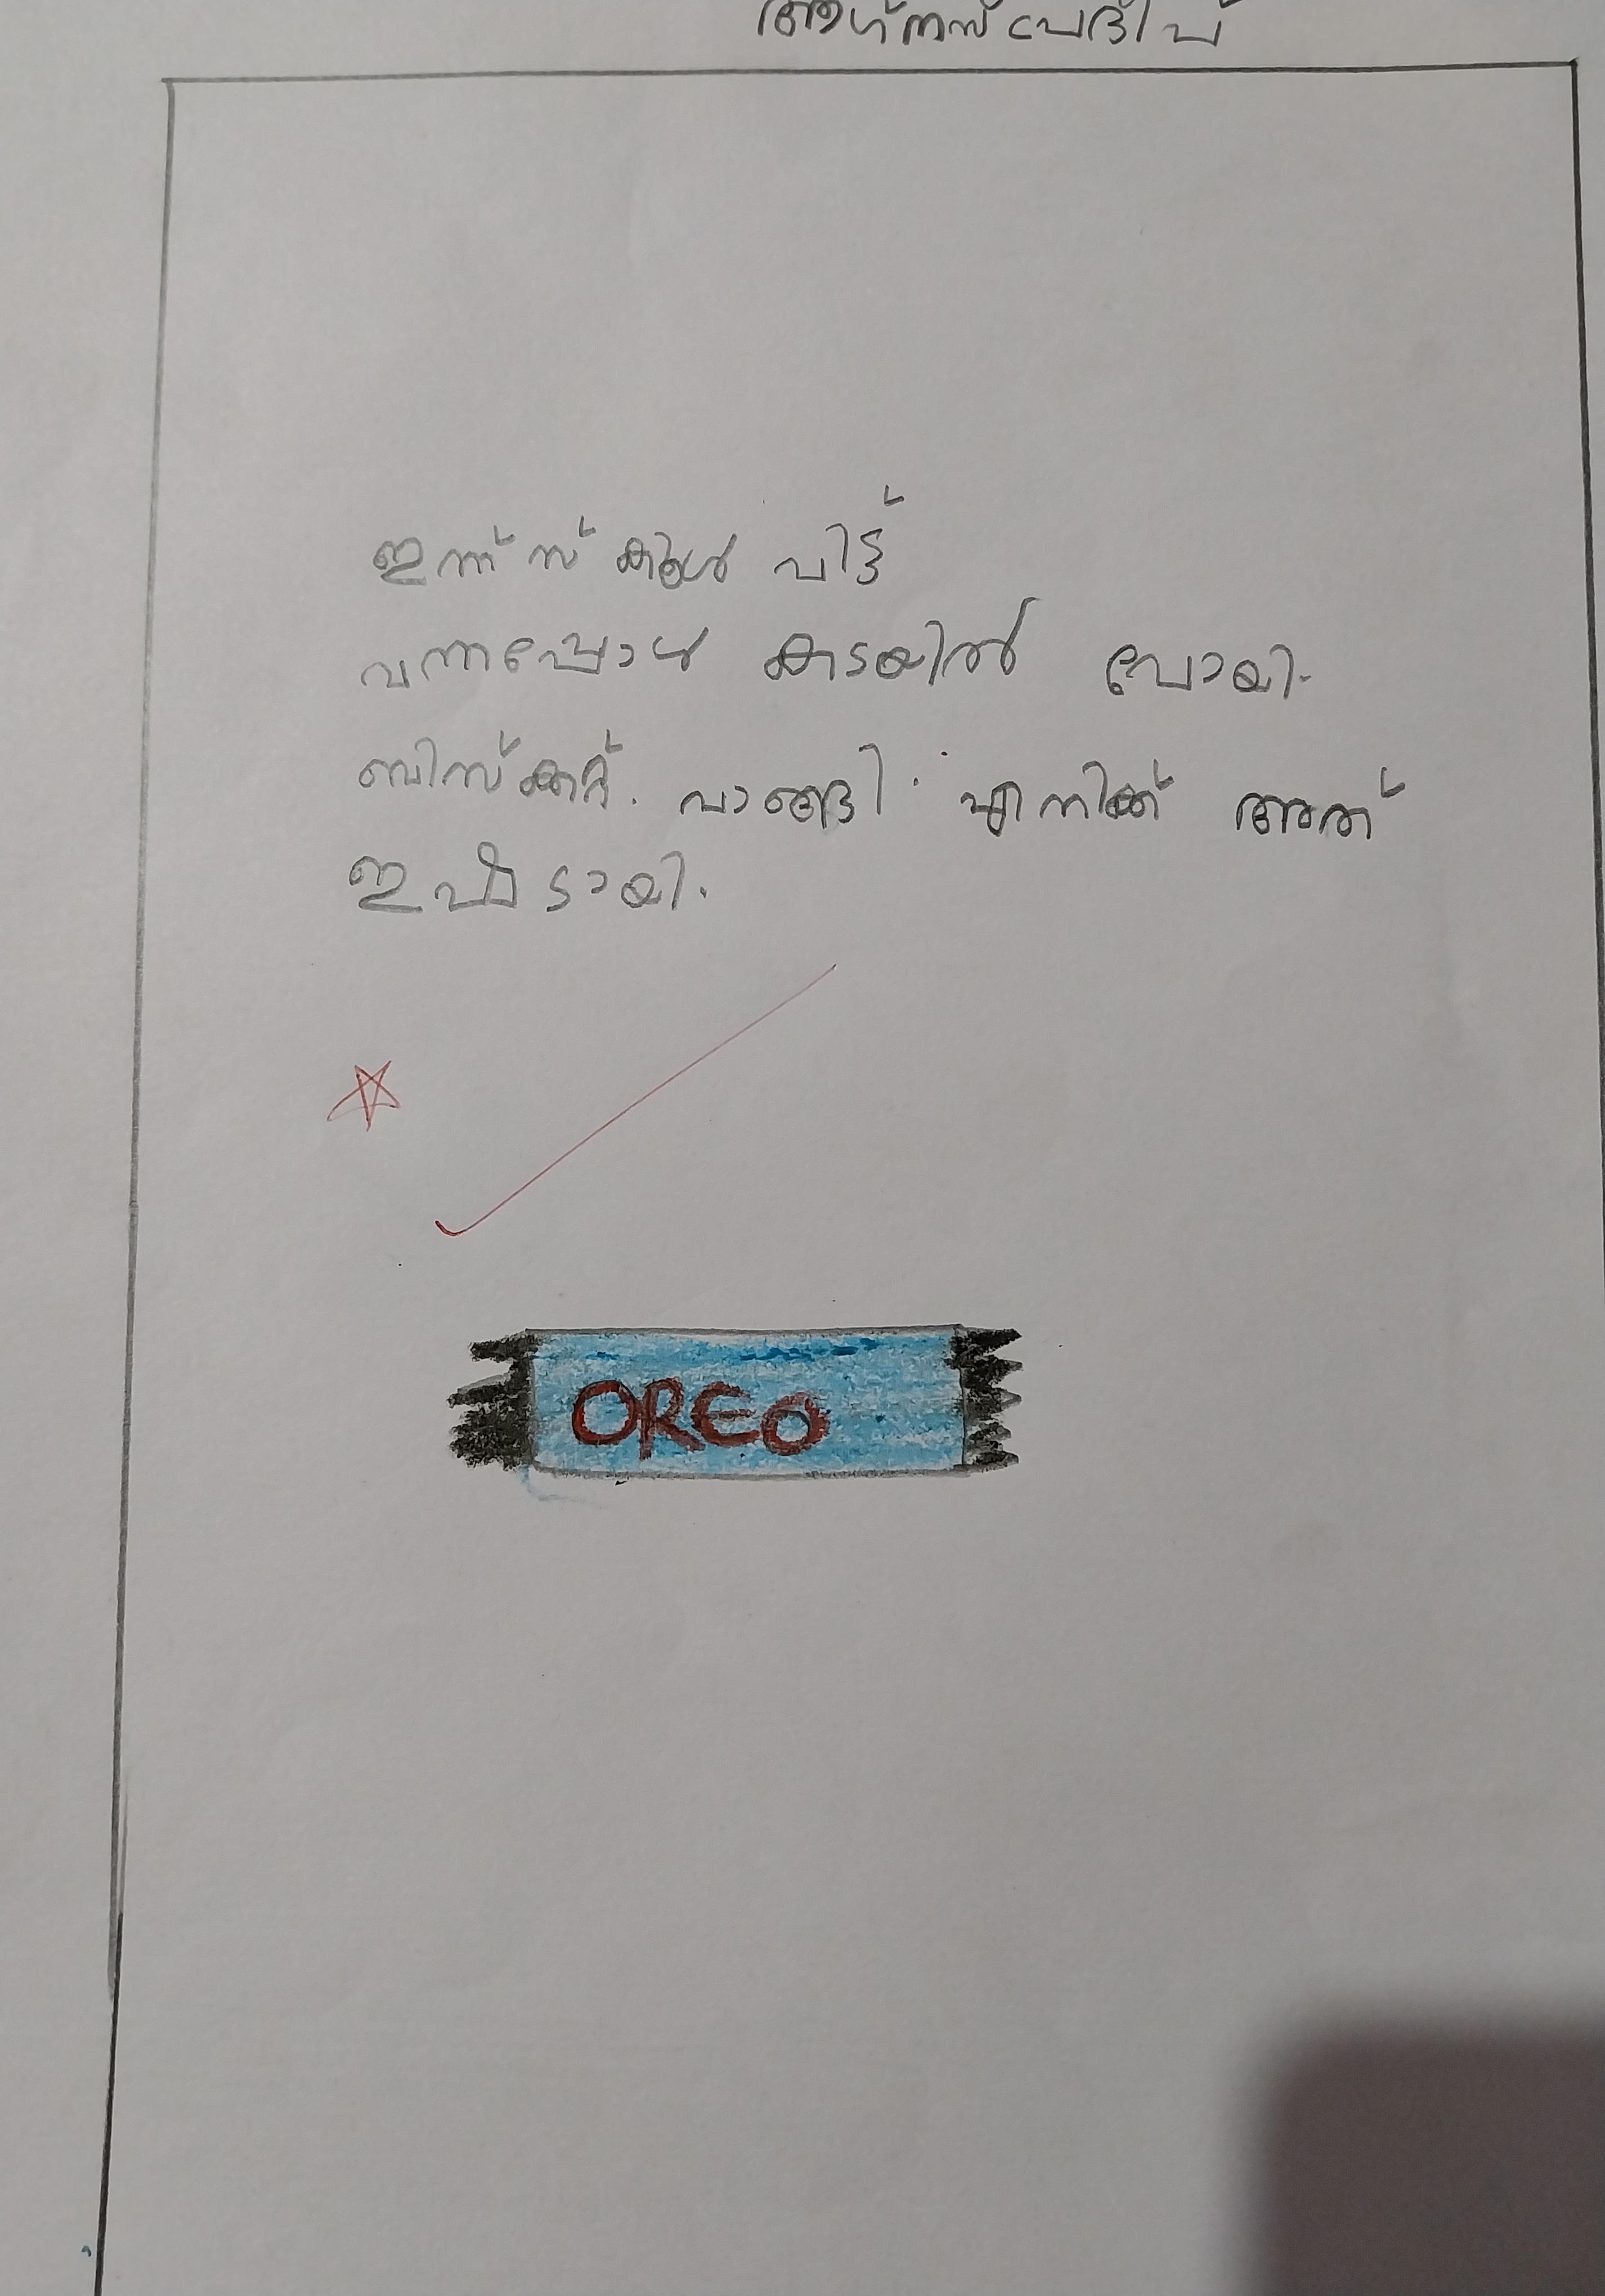 ആഗ്നസ് പ്രദീപ്
ഇന്ന് സ്കൂൾ വിട്ട്
വന്നപ്പോൾ കടയിൽ പോയി.
ബിസ്ക്കറ്റ്. വാങ്ങി. എനിക്ക് അത്
ഇഷ്ടായി.
OREO